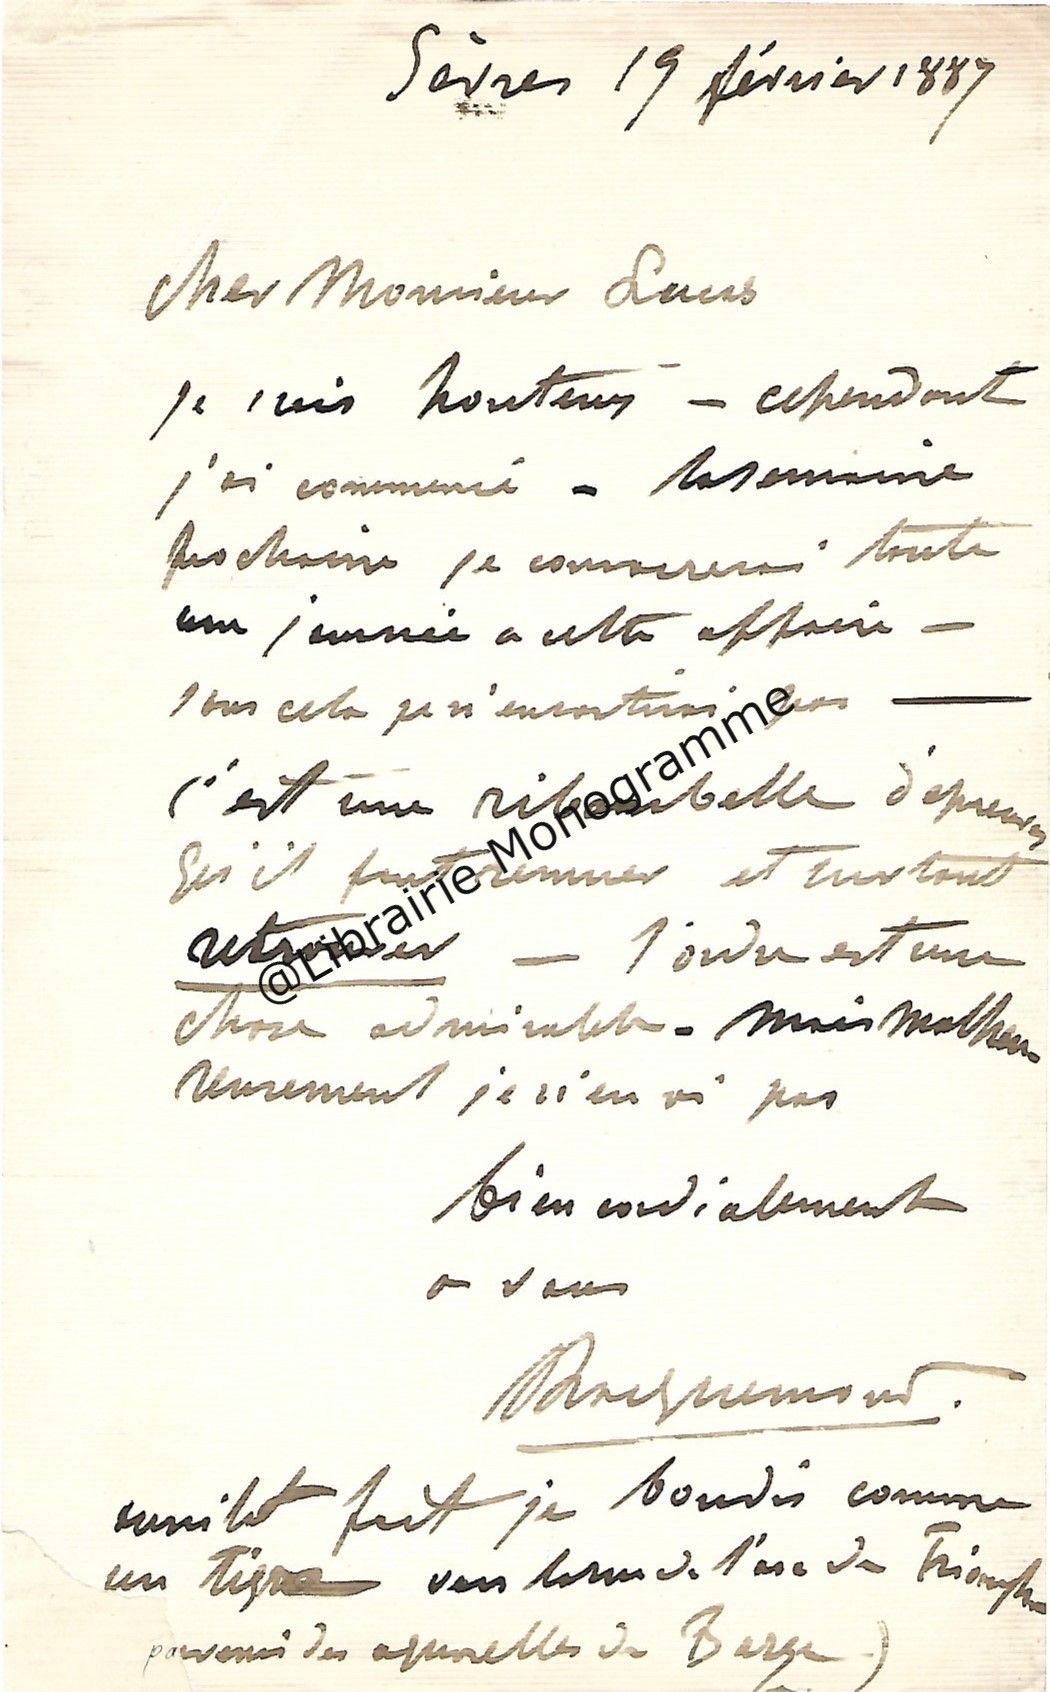 Sèvres 19 février 1887
cher Monsieur Lucas
je suis honteux — cependant
j'ai commencé - la semaine
prochaine je consacrerai toute
une journée a cette affaire —
sans cela je n'en sortirai pas —
c'est une ribambelle d'épreuves
qu'il faut remuer et surtout
retrouver — l'ordre est une
chose admirable - mais malheu-
reusement je n'en ai pas
bien cordialement
a vous
Bracquemond.
aussitôt fait je bondis comme
un tigre vers la rue de l'arc de Triomphe
des aquarelles de Barye)
@Librairie Monogramme